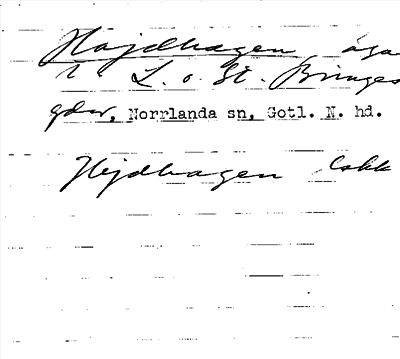 Hajdhagen, äga
i L. o. St. Bringes
gdar, Norrlanda sn, Gotl. N. hd.
Hejdhagen